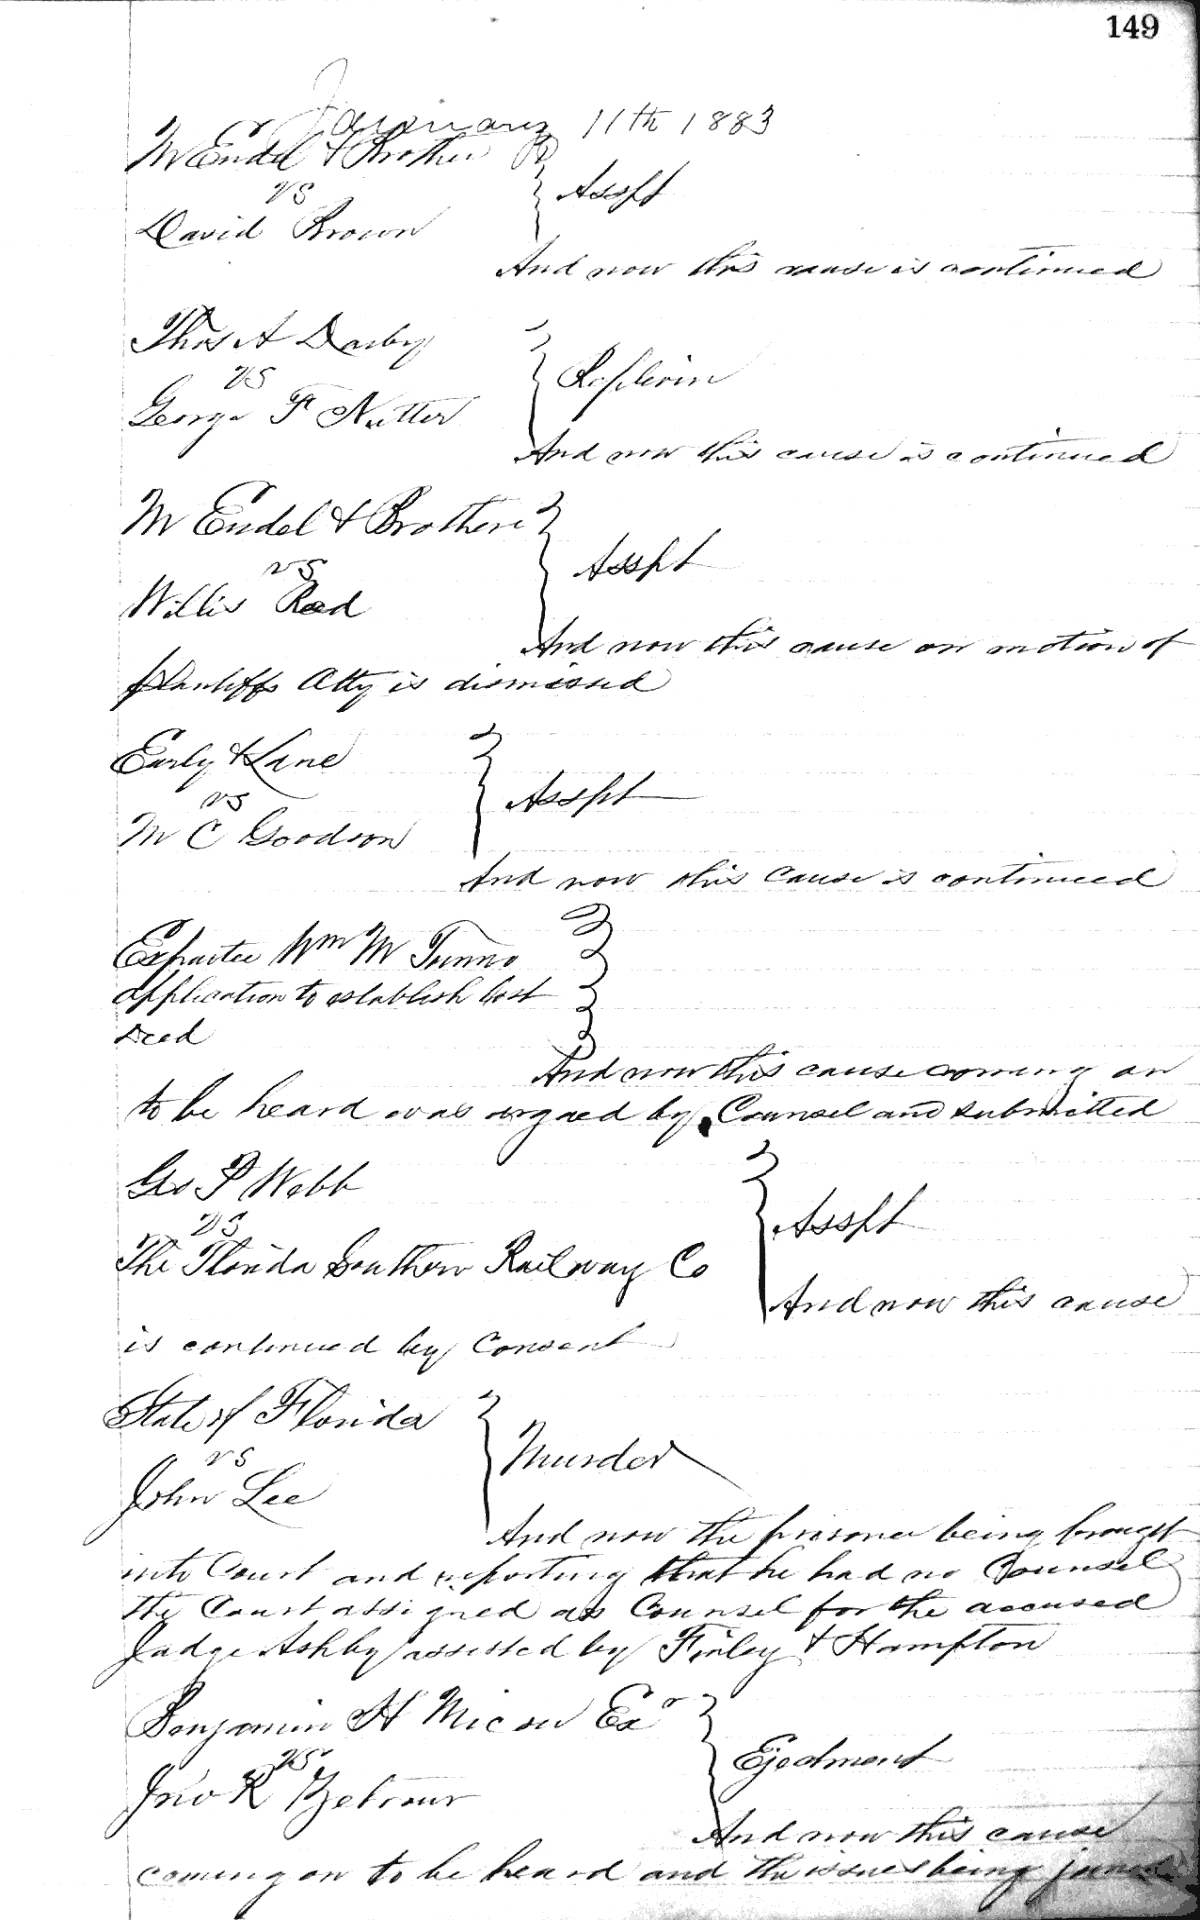 149
January 11th 1883
M Endel & Brother
vs
Asspt
David Brown
And now this cause is continued
Thos A Darby
vs
Replevin
George F Nutter
And now this cause is continued
M Endel & Brother
vs
Asspt
Willis Reed
And now this cause on motion of
plantiffs Atty is dismissed
Early & Lane
vs
Asspt
M C Goodson
And now this cause is continued
Expartee Wm M Tunno
application to establish lost
deed
And now this cause coming on
to be heard was argued by Counsel and submitted
Geo P Webb
vs
Asspt
The Florida Southern Railway Co
And now this cause
is continued by Consent
State of Florida
vs
Murder
John Lee
And now the prisoner being brought
into Court and reporting that he had no Counsel
the Court assigned as Counsel for the accused
Judge Ashby assisted by Finley & Hampton
Benjamin H Micou Exr
vs
Ejectment
Jno R Zetrouer
And now this cause
coming on to be heard and the issues being joined